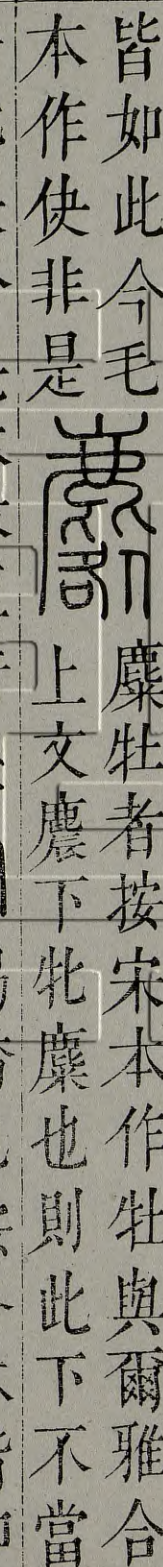 皆如此今毛
本作使非是
麔
麋牡者按宋本作牡與爾雅合
上文麎下牝麋也則此下不當